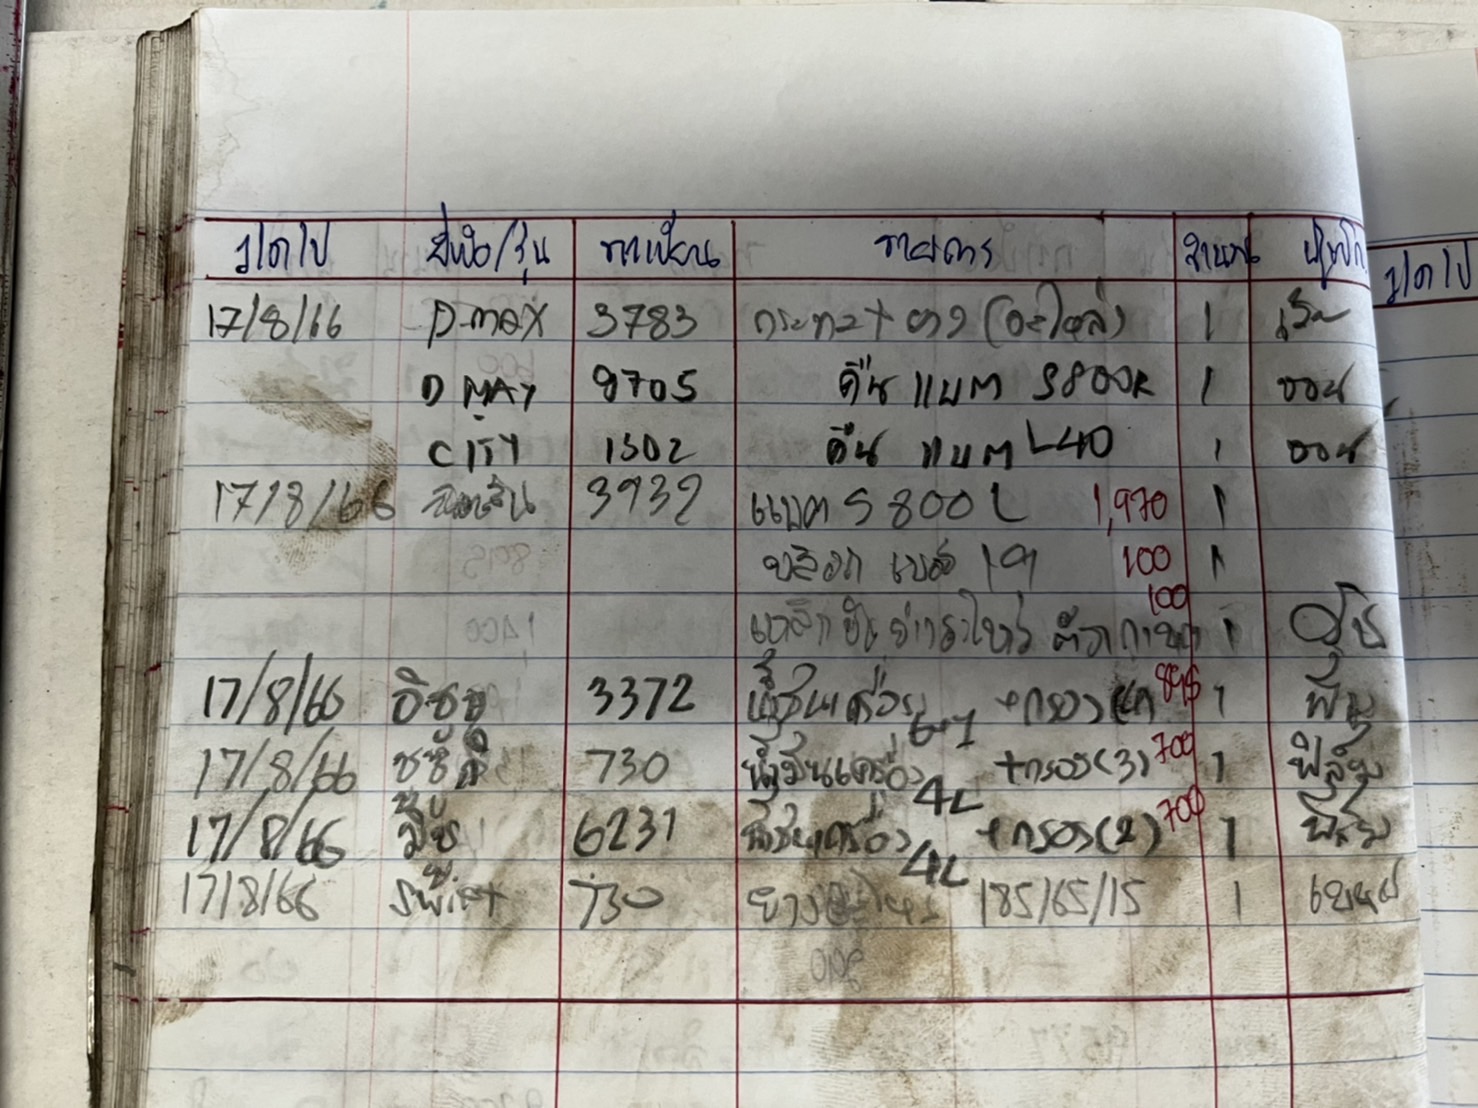 ว/ด/ป ยี่ห้อ/รุ่น ทะเบียน รายการ จำนวน
17/8/66 D-max 3783 กระทะ+ยาง (อะไหล่) 1
D MAX 9705 คืน แบต S800R 1 ออน
CITY 1302 คืน แบต L40 1 ออน
17/8/66 3932 แบต S 800 L 1,970 1
100 1
100 1
17/8/66 อิซูซุ 3372 น้ำมันเครื่อง 6+1 +กรอง 1
17/8/66 730 น้ำมันเครื่อง 4L +กรอง(3) 700 1 ฟิล์ม
17/8/66 6231 น้ำมันเครื่อง 4L +กรอง(2) 700 1 ฟิล์ม
17/8/66 Swift 730 185/65/15 1
ว/ด/ป